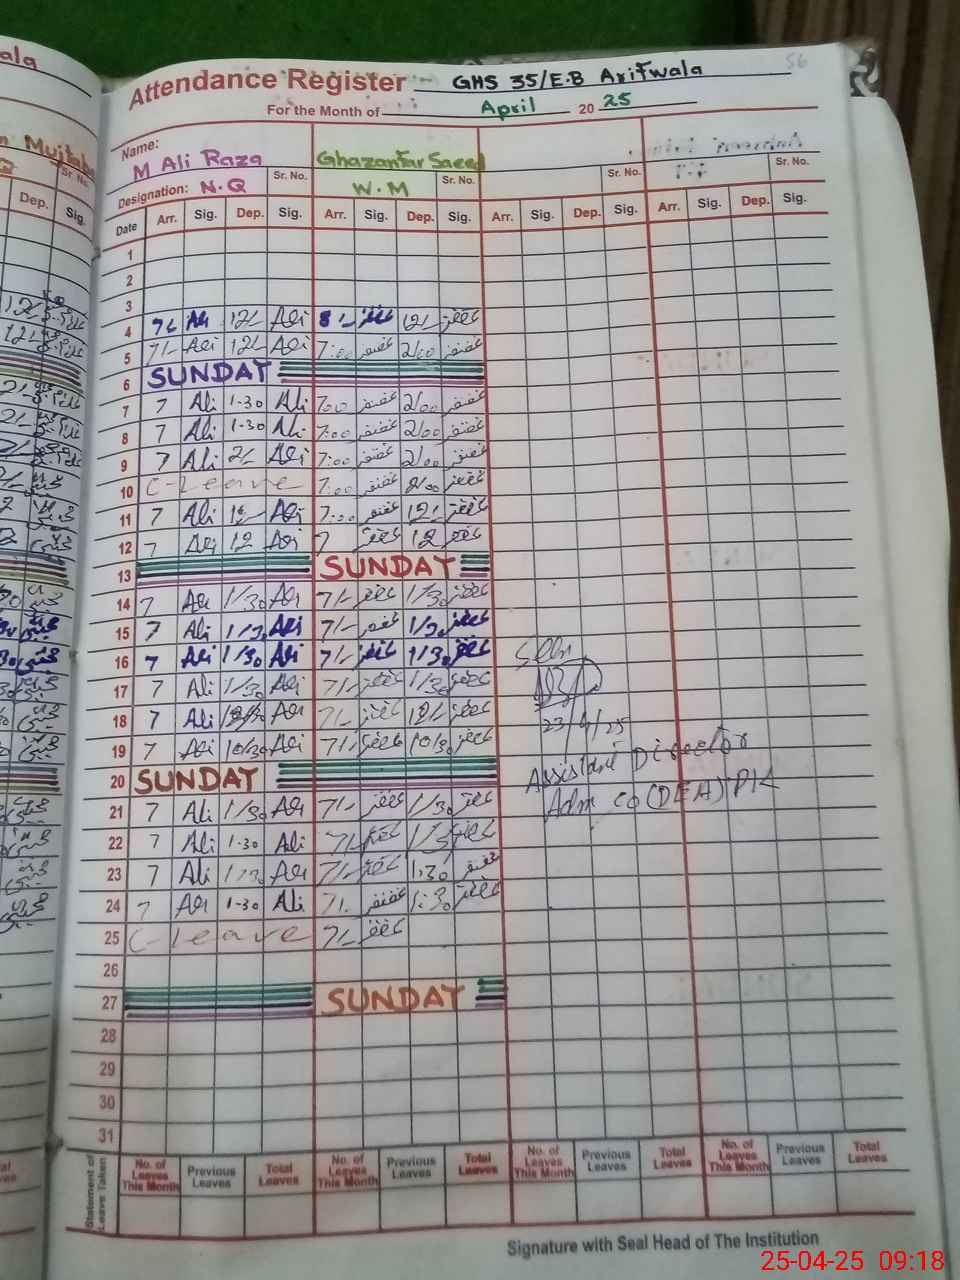 Attendance Register GHS 35/E.B Arifwala
56
For the Month of April 20 25
Name: M Ali Raza Ghazanfar Saeed
Designation: N.Q Sr. No. W.M Sr. No. Sr. No. Sr. No.
Date Arr. Sig. Dep. Sig. Arr. Sig. Dep. Sig. Arr. Sig. Dep. Sig. Arr. Sig. Dep. Sig.
1
2
3
4 7/- Ali 12/- Ali 8/- غضنفر 12/- غضنفر
5 7/- Ali 12/- Ali 7:00 غضنفر 2/00 غضنفر
6 SUNDAY
7 7 Ali 1-30 Ali 7:00 غضنفر 2/00 غضنفر
8 7 Ali 1-30 Ali 7:00 غضنفر 2/00 غضنفر
9 7 Ali 2/- Ali 7:00 غضنفر 2/00 غضنفر
10 C-Leave 7:00 غضنفر 2/00 غضنفر
11 7 Ali 12/- Ali 7:00 غضنفر 12/- غضنفر
12 7 Ali 12 Ali 7 غضنفر 12 غضنفر
13 SUNDAY
14 7 Ali 1/30 Ali 7/- غضنفر 1/30 غضنفر
15 7 Ali 1/30 Ali 7/- غضنفر 1/30 غضنفر
16 7 Ali 1/30 Ali 7/- غضنفر 1/30 غضنفر
17 7 Ali 1/30 Ali 7/- غضنفر 1/30 غضنفر
18 7 Ali Ali 7/- غضنفر 12/- غضنفر
19 7 Ali 10/30 Ali 7/- غضنفر 10/30 غضنفر
20 SUNDAY
21 7 Ali 1/30 Ali 7/- غضنفر 1/30 غضنفر
22 7 Ali 1-30 Ali 7/- غضنفر 1/30 غضنفر
23 7 Ali 1/30 Ali 7/- غضنفر 1:30 غضنفر
24 7 Ali 1-30 Ali 7/- غضنفر 1:30 غضنفر
25 C-Leave 7/- غضنفر
26
27 SUNDAY
28
29
30
31
23/4/25
Assistant Director
Adm
(DEA) PK
Statement of Leave Taken
No. of Leaves This Month Previous Leaves Total Leaves No. of Leaves This Month Previous Leaves Total Leaves No. of Leaves This Month Previous Leaves Total Leaves No. of Leaves This Month Previous Leaves Total Leaves
Signature with Seal Head of The Institution
25-04-25 09:18